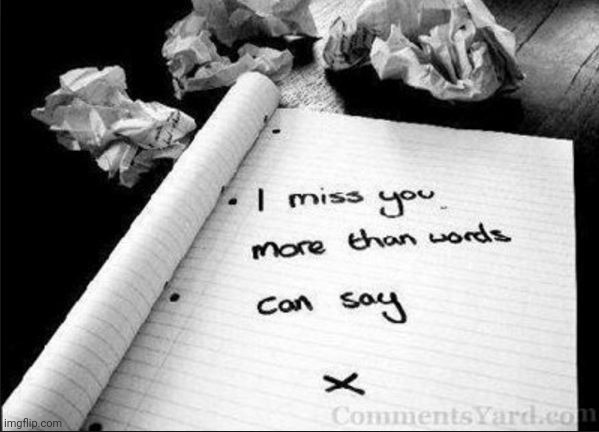 I miss you
more than words
can say
x
CommentsYard.com
imgflip.com